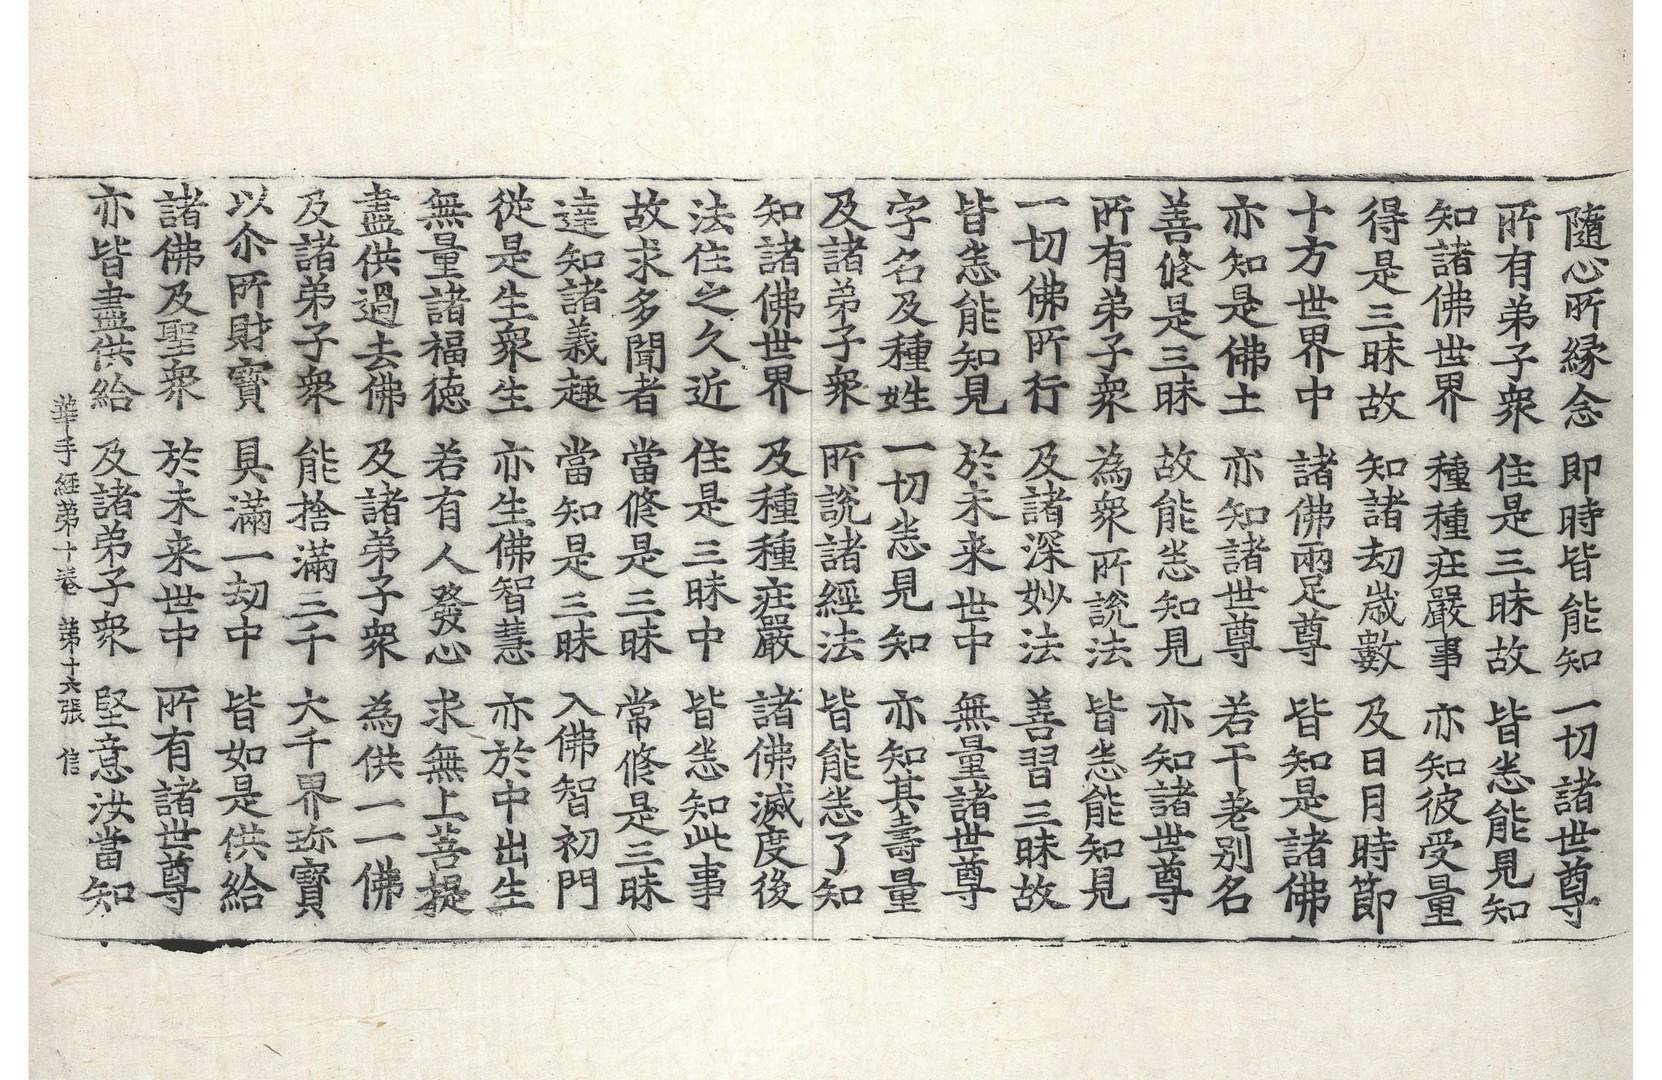 隨心所緣念　即時皆能知　一切諸世尊
所有弟子衆　住是三昧故　皆悉能見知
知諸佛世界　種種莊嚴事　亦知彼受量
得是三昧故　知諸劫歲數　及日月時節
十方世界中　諸佛兩足尊　皆知是諸佛
亦知是佛土　亦知諸世尊　若干差別名
善修是三昧　故能悉知見　亦知諸世尊
所有弟子衆　為衆所說法　皆悉能知見
一切佛所行　及諸深妙法　善習三昧故
皆悉能知見　於未来世中　無量諸世尊
字名及種姓　一切悉見知　亦知其壽量
及諸弟子衆　所説諸經法　皆能悉了知
知諸佛世界　及種種莊嚴　諸佛滅度後
法住之久近　住是三昧中　皆悉知此事
故求多聞者　當修是三昧　常修是三昧
達知諸義趣　當知是三昧　入佛智初門
從是生衆生　亦生佛智慧　亦於中出生
無量諸福徳　若有人發心　求無上菩提
盡供過去佛　及諸弟子衆　為供一一佛
及諸弟子衆　能捨滿三千　大千界珎寶
以尒所財寶　具滿一劫中　皆如是供給
諸佛及聖衆　於未来世中　所有諸世尊
亦皆盡供給　及諸弟子衆　堅意汝當知
華手經第十卷　第十六張　信